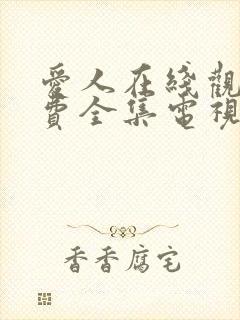 愛人在綫觀
費全集電視
香香腐宅